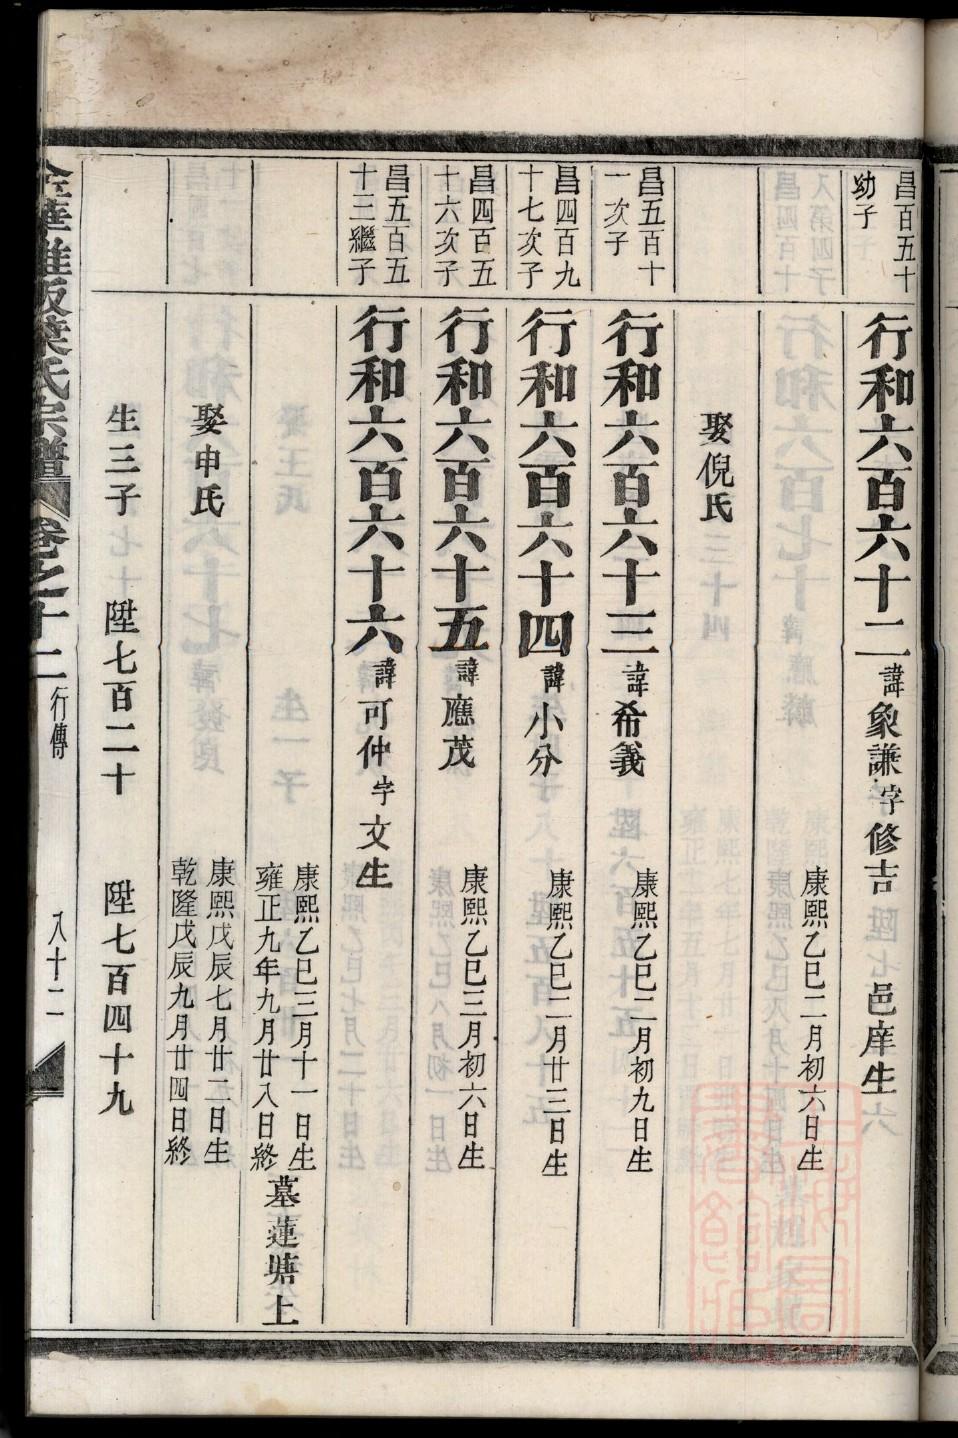 昌百五十
幼子
行和六百六十二諱象謙字修吉邑庠生
康熙乙巳二月初六日生
娶倪氏
昌五百十
一次子
行和六百六十三諱希義
康熙乙巳二月初九日生
昌四百九
十七次子
行和六百六十四諱小分
康熙乙巳二月廿三日生
昌四百五
十六次子
行和六百六十五諱應茂
康熙乙巳三月初六日生
昌五百五
十三繼子
行和六百六十六諱可仲字文生
康熙乙巳三月十一日生
雍正九年九月廿八日終
墓蓮塘上
娶申氏
康熙戊辰七月廿二日生
乾隆戊辰九月廿四日終
生三子 陞七百二十 陞七百四十九
氏宗譜 卷之十二 行傳 八十二